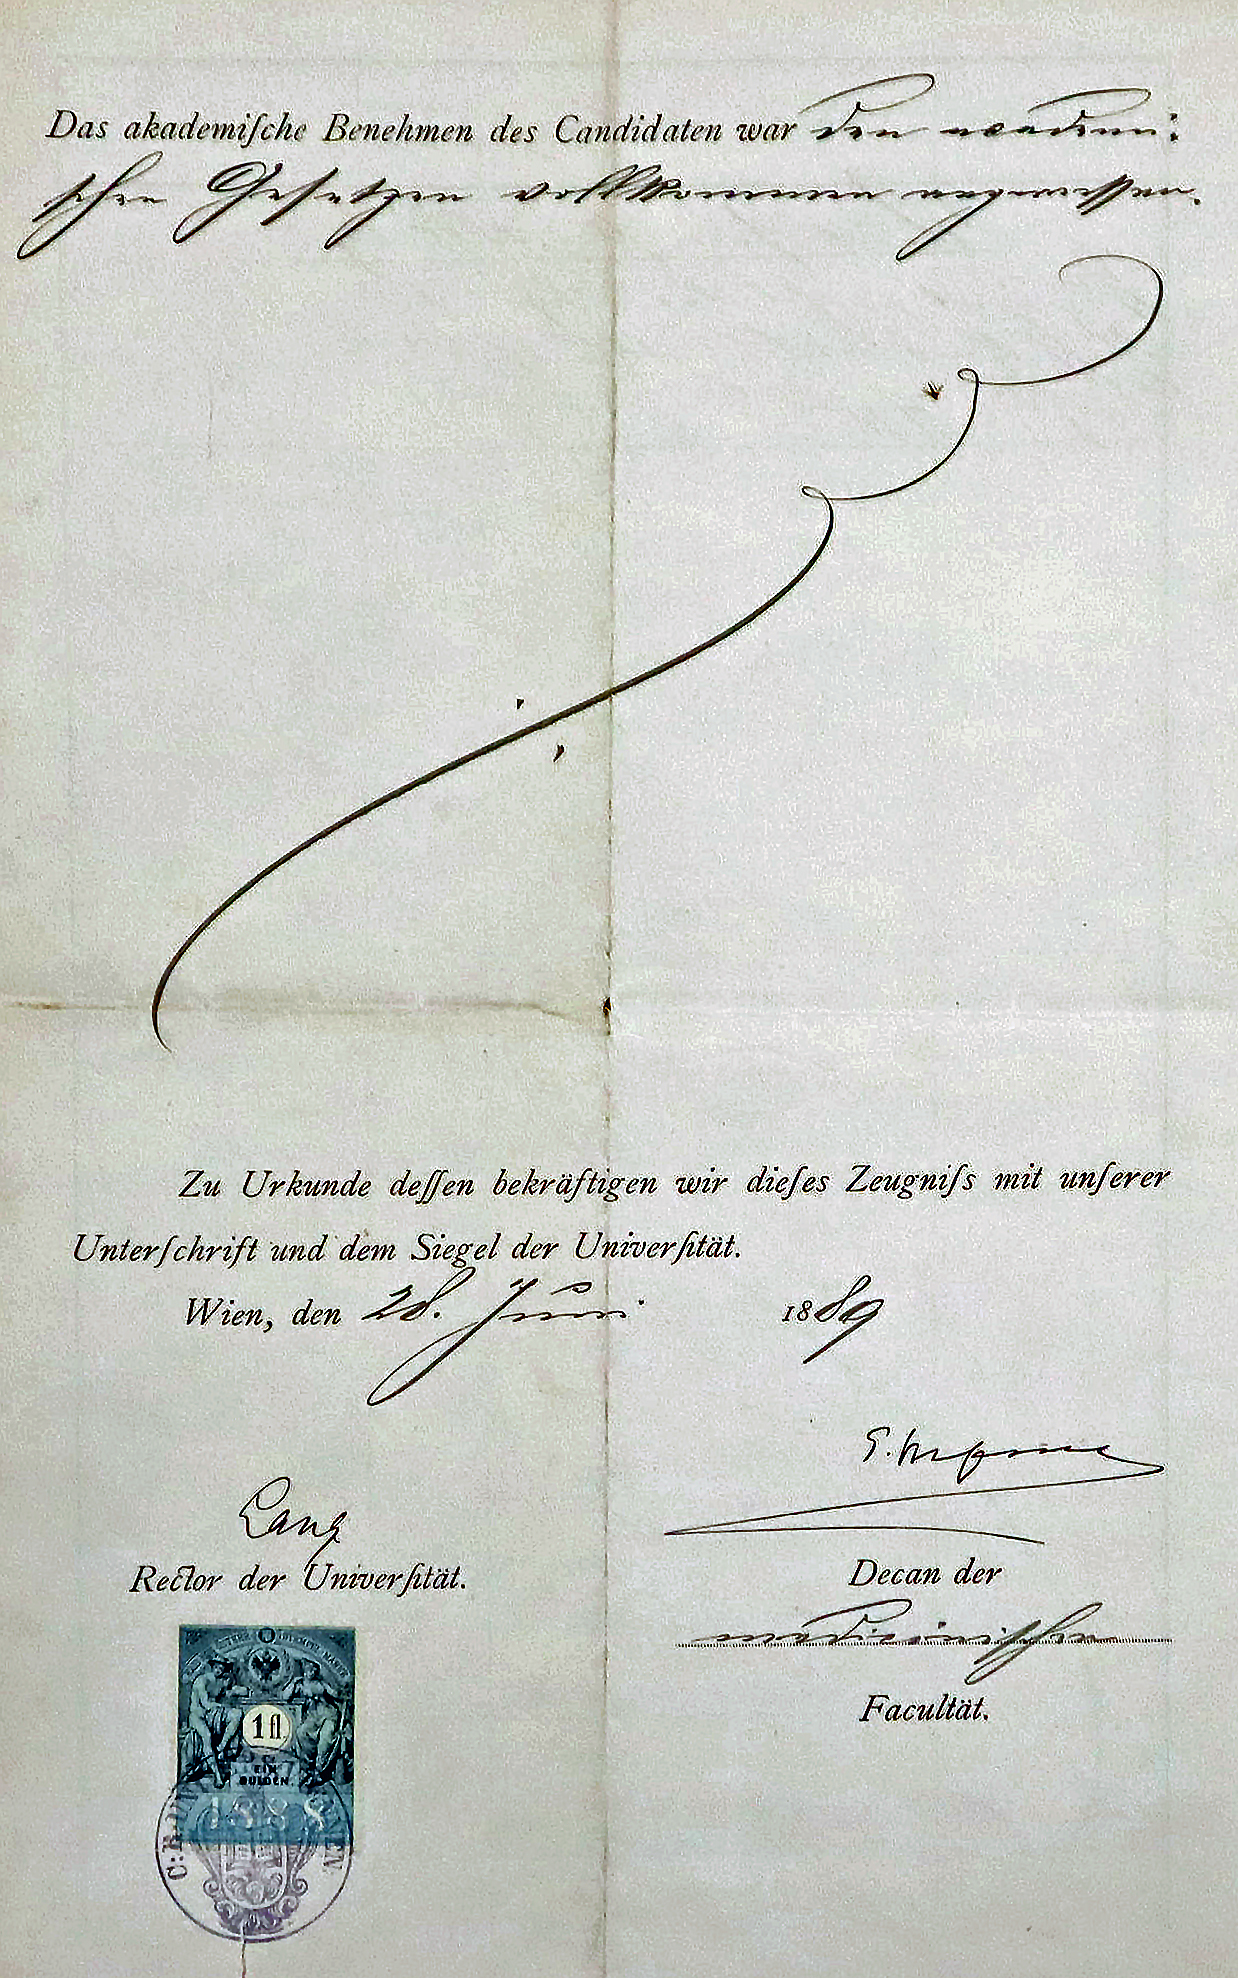 Das akademiſche Benehmen des Candidaten war den academi-
ſchen Gesetzen vollkommen angemessen.
Zu Urkunde deſſen bekräftigen wir dieſes Zeugniſs mit unſerer
Unterſchrift und dem Siegel der Univerſität.
Wien, den 28. Juni 1889
Lang
Rector der Univerſität.
Decan der
medicinischen
Facultät.
1 fl.
EIN
GULDEN
1888